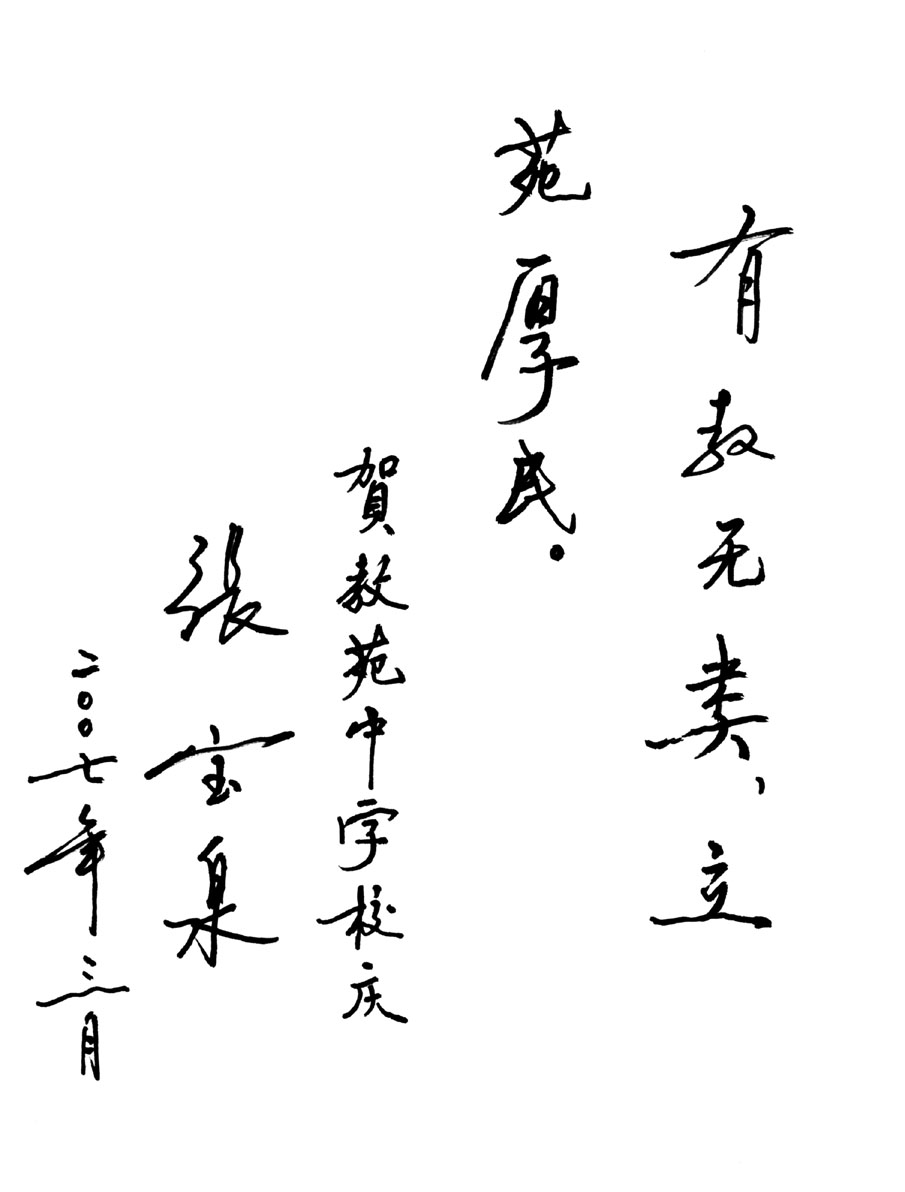 有教无类，立
苑厚民。
賀教苑中学校庆
張宝泉
二00七年三月